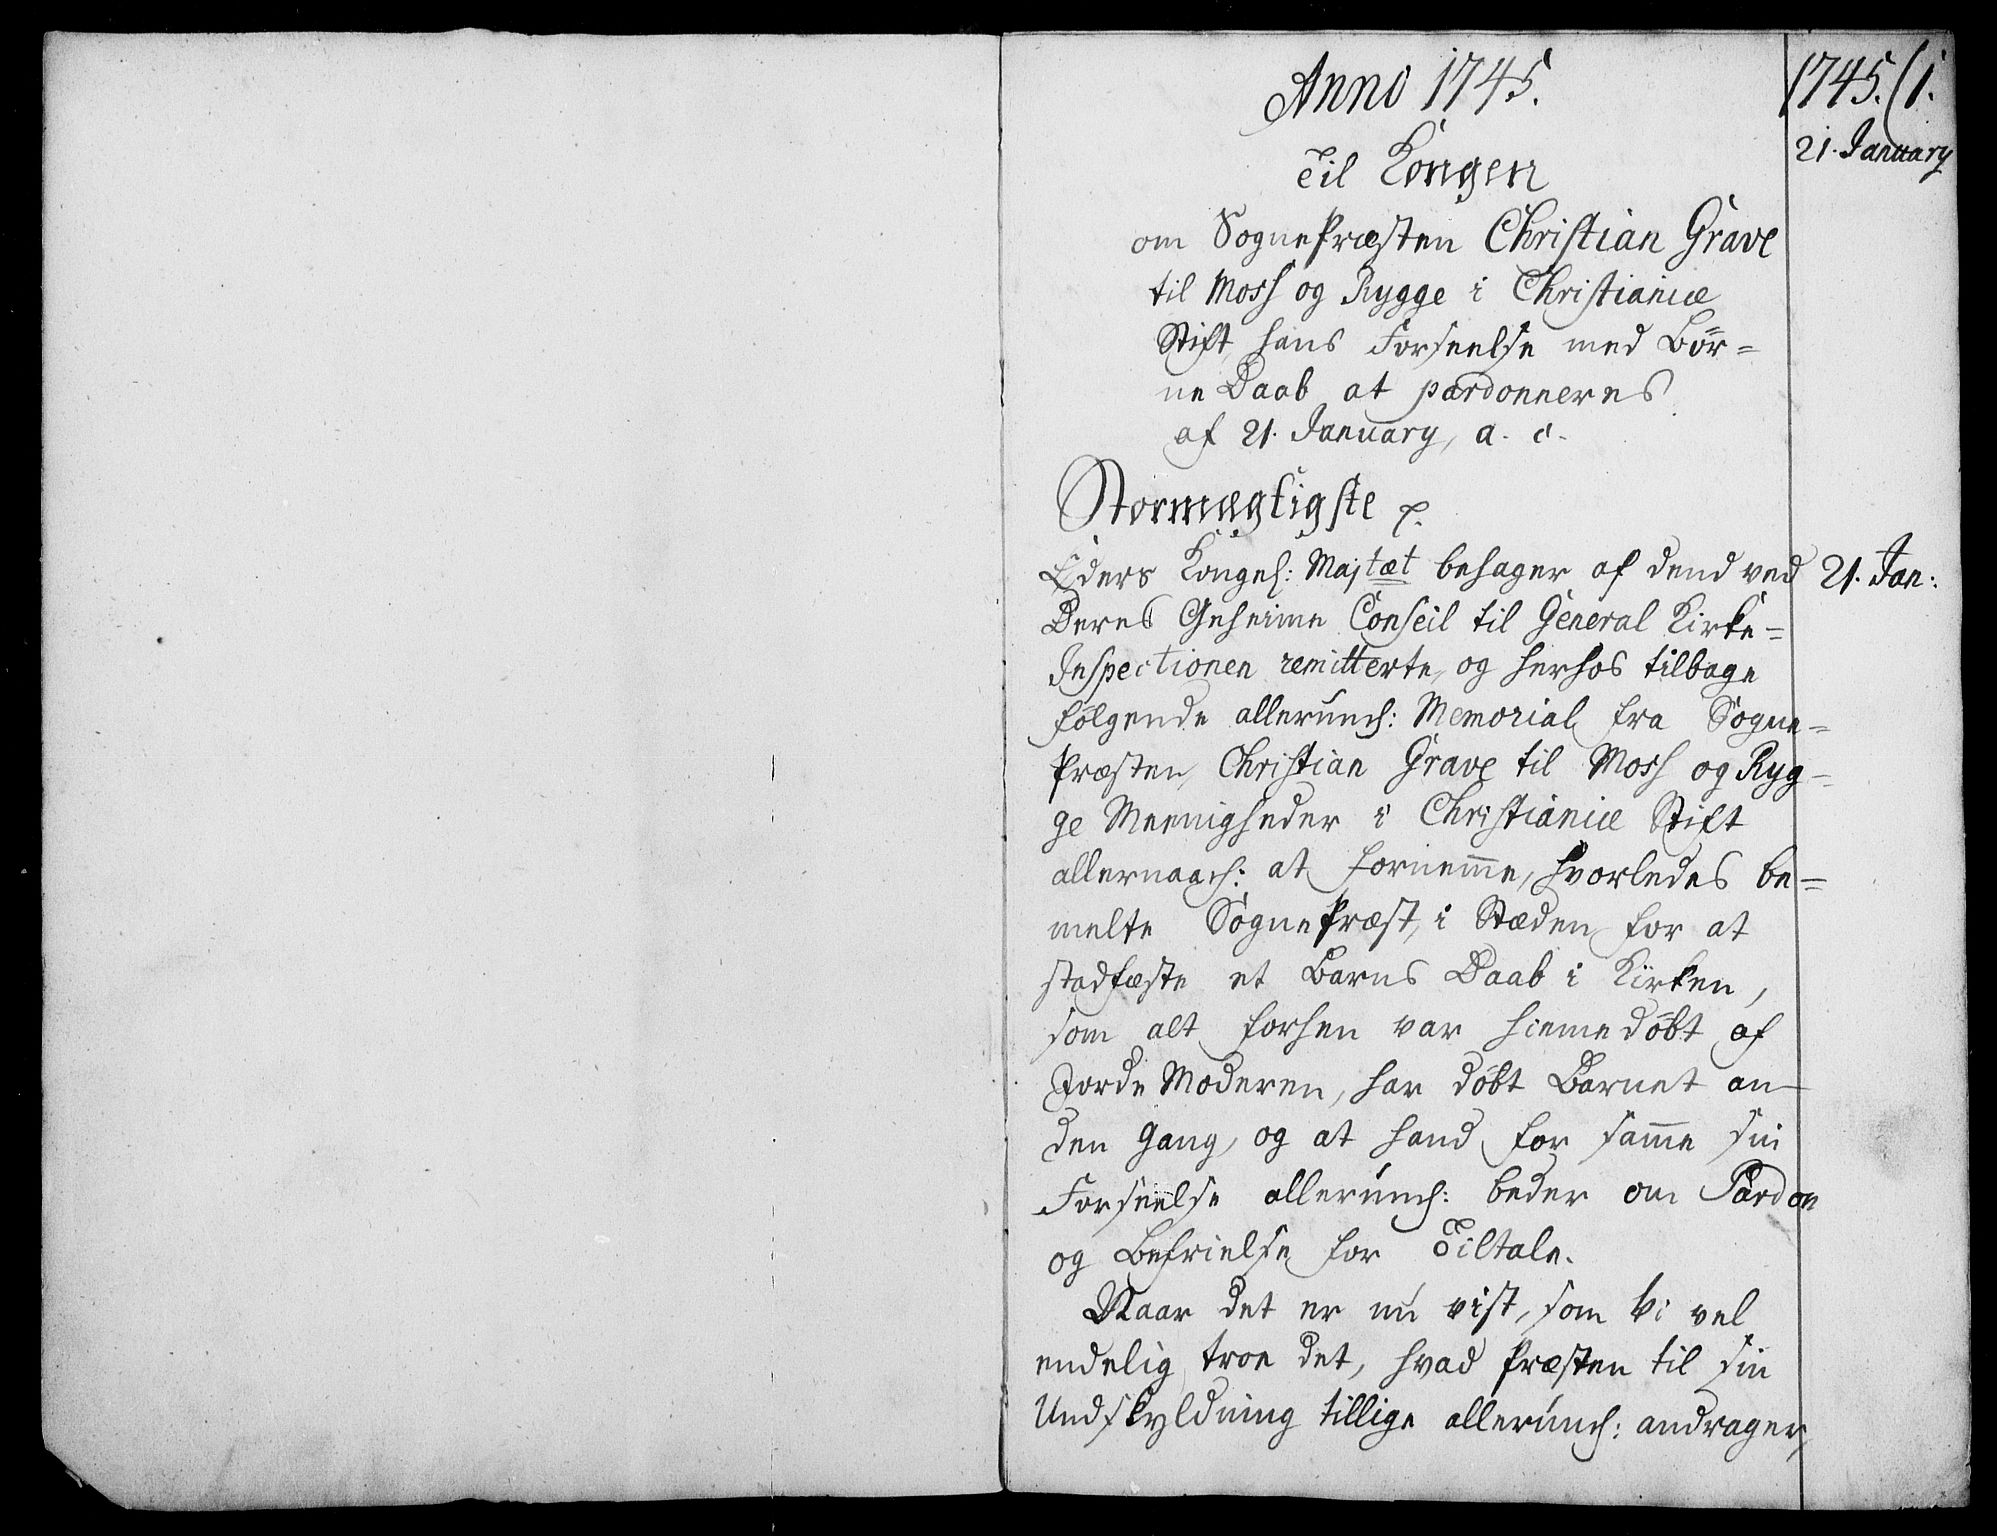 Anno 1745.
1745. (1.
21. January
Til Kongen
om SognePræsten Christian Grave
til Moss og Rygge i Christianiæ
Stift, hans Forseelse med Bør=
ne Daab at pardonneres
af 21. January, a. c.
Stormægtigste p.
Eders Kongel: Majtæt behager af dend ved
21. Jan:
Deres Geheime Conseil til General Kirke=
Inspectionen remitterte, og herhos tilbage
følgende allerund: Memorial fra Sogne=
Præsten, Christian Grave til Moss og Ryg=
ge Meenigheder i Christianiæ Stift
allernaad: at fornemme, hvorledes be=
melte SognePræst, i Stæden for at
stadfæste et Barns Daab i Kirken,
som alt forhen var hiemedøbt af
Jorde Moderen, har døbt Barnet an-
den Gang, og at hand for samme sin
Forseelse allerund: beder om Pardon
og Befrielse for Tiltale.
Naar det er nu vist, som vi vel
endelig troe det, hvad Præsten til sin
Undskyldning tillige allerund: andrager,